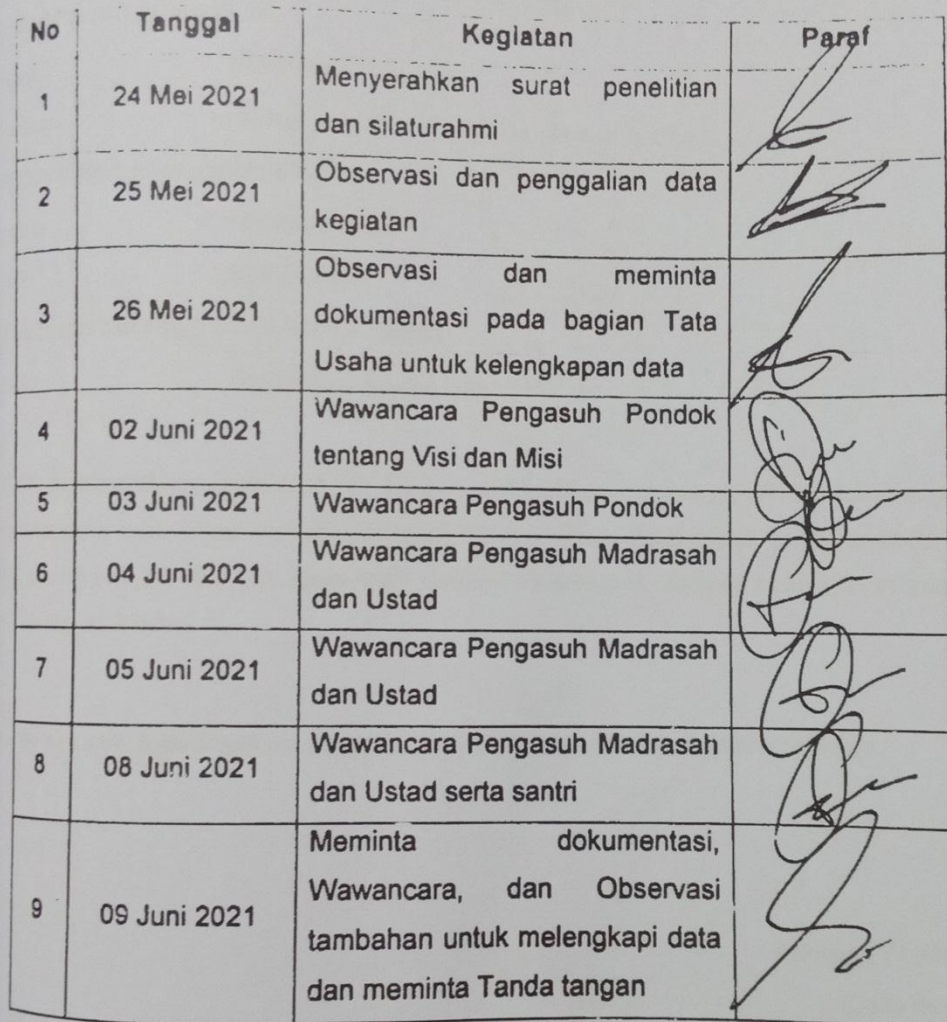 No Tanggal Kegiatan Paraf
1 24 Mei 2021 Menyerahkan surat penelitian
dan silaturahmi
2 25 Mei 2021 Observasi dan penggalian data
kegiatan
3 26 Mei 2021 Observasi dan meminta
dokumentasi pada bagian Tata
Usaha untuk kelengkapan data
4 02 Juni 2021 Wawancara Pengasuh Pondok
tentang Visi dan Misi
5 03 Juni 2021 Wawancara Pengasuh Pondok
6 04 Juni 2021 Wawancara Pengasuh Madrasah
dan Ustad
7 05 Juni 2021 Wawancara Pengasuh Madrasah
dan Ustad
8 08 Juni 2021 Wawancara Pengasuh Madrasah
dan Ustad serta santri
9 09 Juni 2021 Meminta dokumentasi,
Wawancara, dan Observasi
tambahan untuk melengkapi data
dan meminta Tanda tangan